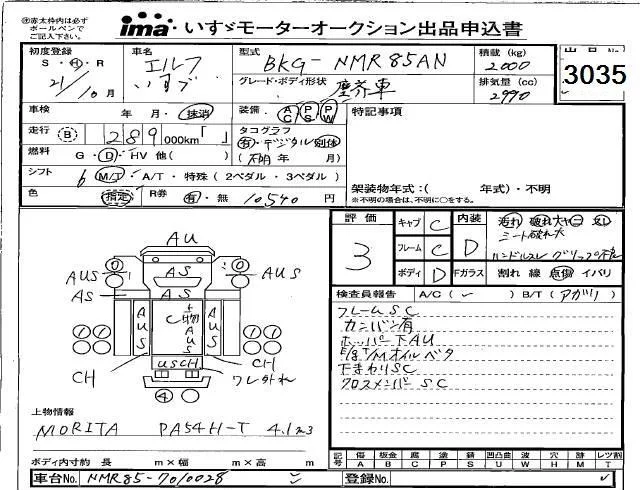 ※赤太枠内は必ず
ボールペンで
ご記入下さい。
ima いすゞモーターオークション出品申込書
初度登録 S・H・R 21/10月
車名 エルフ いすゞ
型式 BKG-NMR85AN
積載(kg) 2000
グレード・ボディ形状 塵芥車
排気量(cc) 2990
出品No.
3035
車検 年 月・抹消
装備・AC PS PW
特記事項
走行 B 289 000km「 」
タコグラフ
有・デジタル 別体
(不明 年 月)
燃料 G・D・HV 他( )
シフト 6 M/T・A/T・特殊(2ペダル・3ペダル)
色 指定 R券 有・無 10,540 円
架装物年式:( 年式)・不明
※不明の場合は、不明に○をする。
評価 3
キャブ C 内装 D
フレーム C
ボディ D Fガラス 割れ 線 点傷 イバリ
汚れ 破れ大 ヤニ スレ
シート破れ大
ハンドルスレ
検査員報告 A/C(✓) B/T(アガリ)
フレームSC
カンバン有
ホッパー下AU
E/g T/Mオイルベタ
下まわりSC
クロスメンバーSC
AU
AUS AS AUS
AS AS
AUS AUS
CH CH
USCH
ワレ
4
上物情報
MORITA PA54H-T 4.1m3
ボディ内寸約 長 m×幅 m×高 m
記号 傷 A 板金 B 腐 C 塗 P 錆 S 凹凸曲 U 波 W 穴 H 跡 M レツ割 T
車台No. NMR85-7010028
登録No.